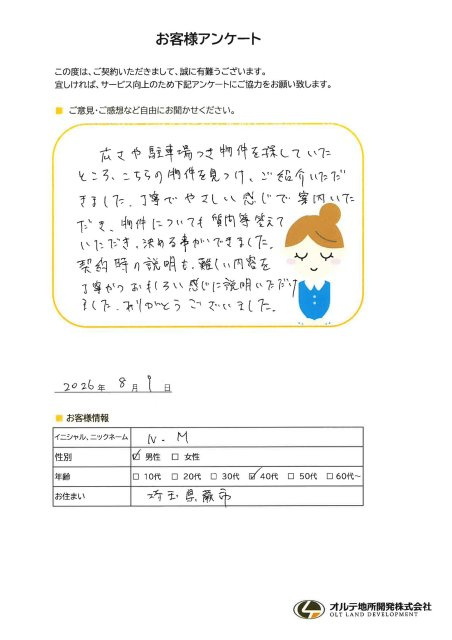 お客様アンケート
この度は、ご契約いただきまして、誠に有難うございます。
宜しければ、サービス向上のため下記アンケートにご協力をお願い致します。
■ ご意見・ご感想など自由にお聞かせください。
広さや駐車場つき物件を探していた
ところ、こちらの物件を見つけ、ご紹介いただ
きました。丁寧でやさしい感じで案内いた
だき、物件についても質問等答えて
いただき、決める事ができました。
契約時の説明も、難しい内容を
丁寧かつおもしろい感じに説明いただけ
ました。ありがとうございました。
2026年 8月 1日
■ お客様情報
イニシャル、ニックネーム N.M
性別 ☑ 男性 □ 女性
年齢 □ 10代 □ 20代 □ 30代 ☑ 40代 □ 50代 □ 60代~
お住まい 埼玉県蕨市
オルテ地所開発株式会社
OLT LAND DEVELOPMENT